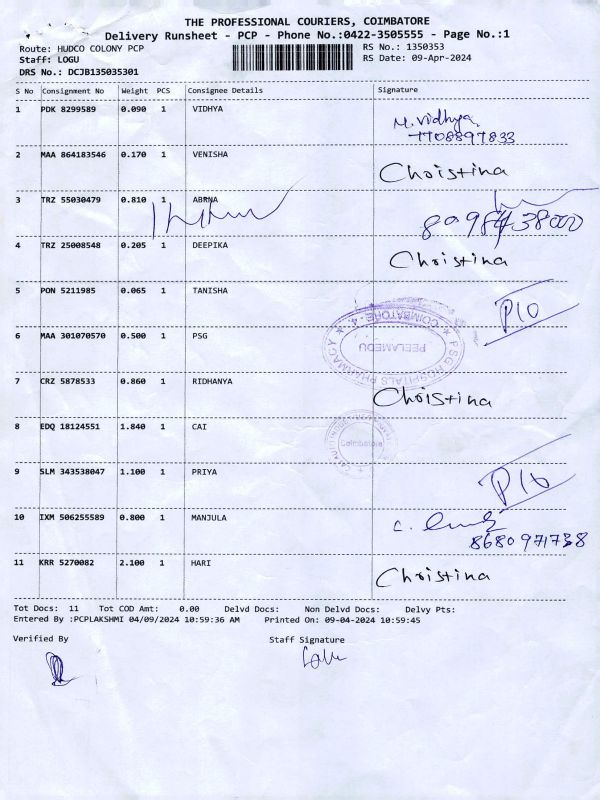 THE PROFESSIONAL COURIERS, COIMBATORE
Delivery Runsheet - PCP - Phone No.:0422-3505555 - Page No.:1
Route: HUDCO COLONY PCP RS No.: 1350353
Staff: LOGU RS Date: 09-Apr-2024
DRS No.: DCJB135035301
S No Consignment No Weight PCS Consignee Details Signature
1 PDK 8299589 0.090 1 VIDHYA M. Vidhya
7708897833
2 MAA 864183546 0.170 1 VENISHA Christina
3 TRZ 55030479 0.810 1 ABRNA
4 TRZ 25008548 0.205 1 DEEPIKA Christina
5 PON 5211985 0.065 1 TANISHA P10
6 MAA 301070570 0.500 1 PSG PSG HOSPITALS PHARMACY PEELAMEDU COIMBATORE - 4
7 CRZ 5878533 0.860 1 RIDHANYA Christina
8 EDQ 18124551 1.840 1 CAI Coimbatore
9 SLM 343538047 1.100 1 PRIYA
10 IXM 506255589 0.800 1 MANJULA
8680971738
11 KRR 5270082 2.100 1 HARI Christina
Tot Docs: 11 Tot COD Amt: 0.00 Delvd Docs: Non Delvd Docs: Delvy Pts:
Entered By :PCPLAKSHMI 04/09/2024 10:59:36 AM Printed On: 09-04-2024 10:59:45
Verified By Staff Signature